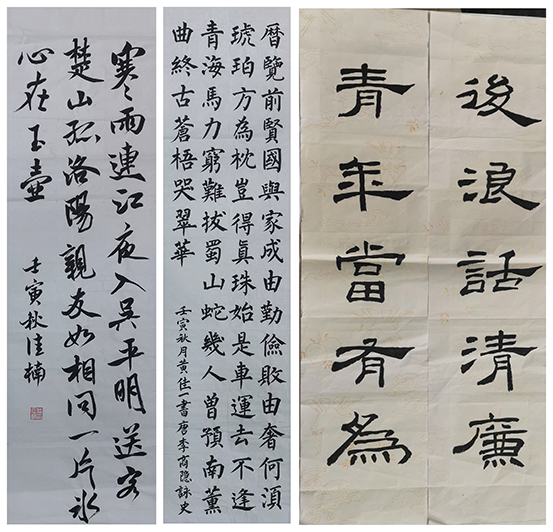 寒雨連江夜入吳平明送客
楚山孤洛陽親友如相問一片冰
心在玉壺
壬寅秋佳楠
曆覽前賢國與家成由勤儉敗由奢何須
琥珀方為枕豈得眞珠始是車運去不逢
青海馬力窮難拔蜀山蛇幾人曾預南薰
曲終古蒼梧哭翠華
壬寅秋月黄佳一書唐李商隐詠史
後浪話清廉
青年當有為